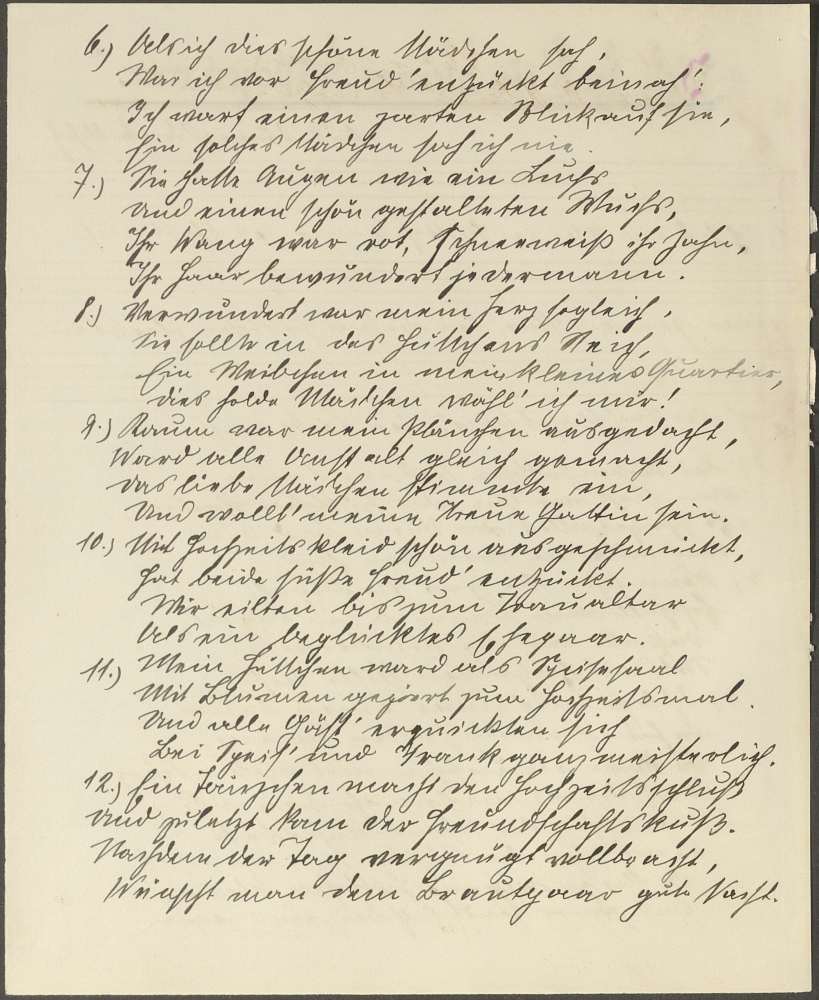 6.) Als ich dies schöne Mädchen sah,
War ich vor Freud' entzückt beinah';
Ich warf einen zarten Blick auf sie,
Ein solches Mädchen sah ich nie.
7.) Sie hatte Augen wie ein Luchs
Und einen schön gestalteten Wuchs,
Ihr Wang war rot, schneeweiß ihr Zahn,
Ihr Haar bewundert jedermann.
8.) Verwundert war mein Herz sogleich,
Sie sollte in des Hüttchens Reich,
Ein Weibchen in mein kleines Quartier,
dies holde Mädchen wähl' ich mir!
9.) Kaum war mein Plänchen ausgedacht,
Ward alle Anstalt gleich gemacht,
das liebe Mädchen stimmte ein,
Und wollt' meine treue Gattin sein.
10.) Mit Hochzeitskleid schön ausgeschmückt,
Hat beide süße Freud' entzückt.
Wir eilten bis zum Traualtar
Als ein beglücktes Ehepaar.
11.) Mein Hüttchen ward als Speisesaal
Mit Blumen geziert zum Hochzeitsmal.
Und alle Gäst' erquickten sich
Bei Speis' und Trank ganz meisterlich.
12.) Ein Tänzchen macht den Hochzeitsschluß
Und zuletzt kam der Freundschaftskuß.
Nachdem der Tag vergnügt vollbracht,
Wünscht man dem Brautpaar gute Nacht.